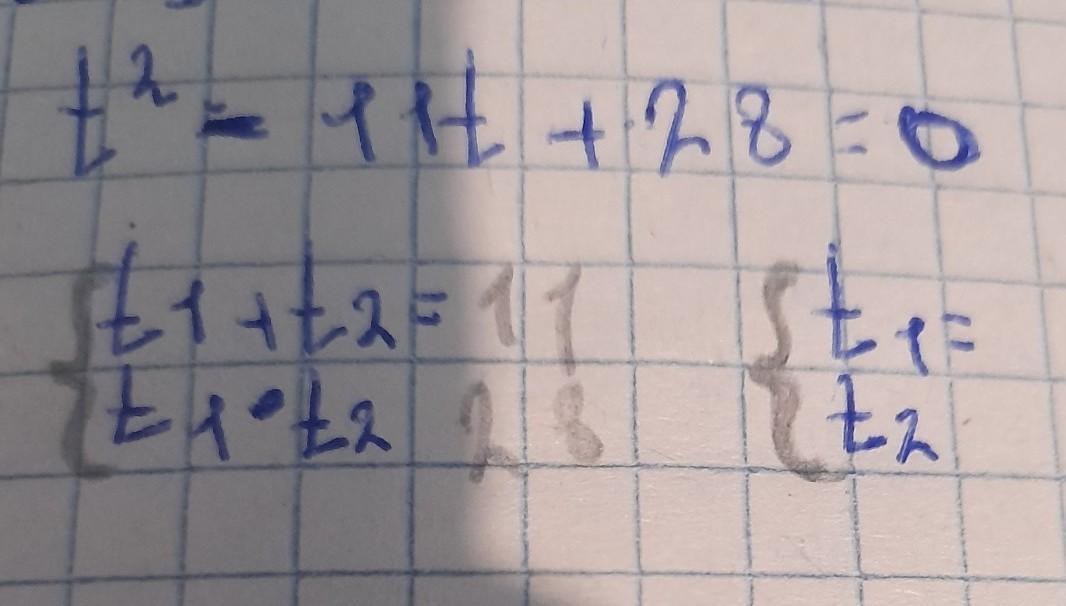 t² - 11t + 28 = 0
{ t1 + t2 = 11 { t1 =
t1 • t2 28 t2